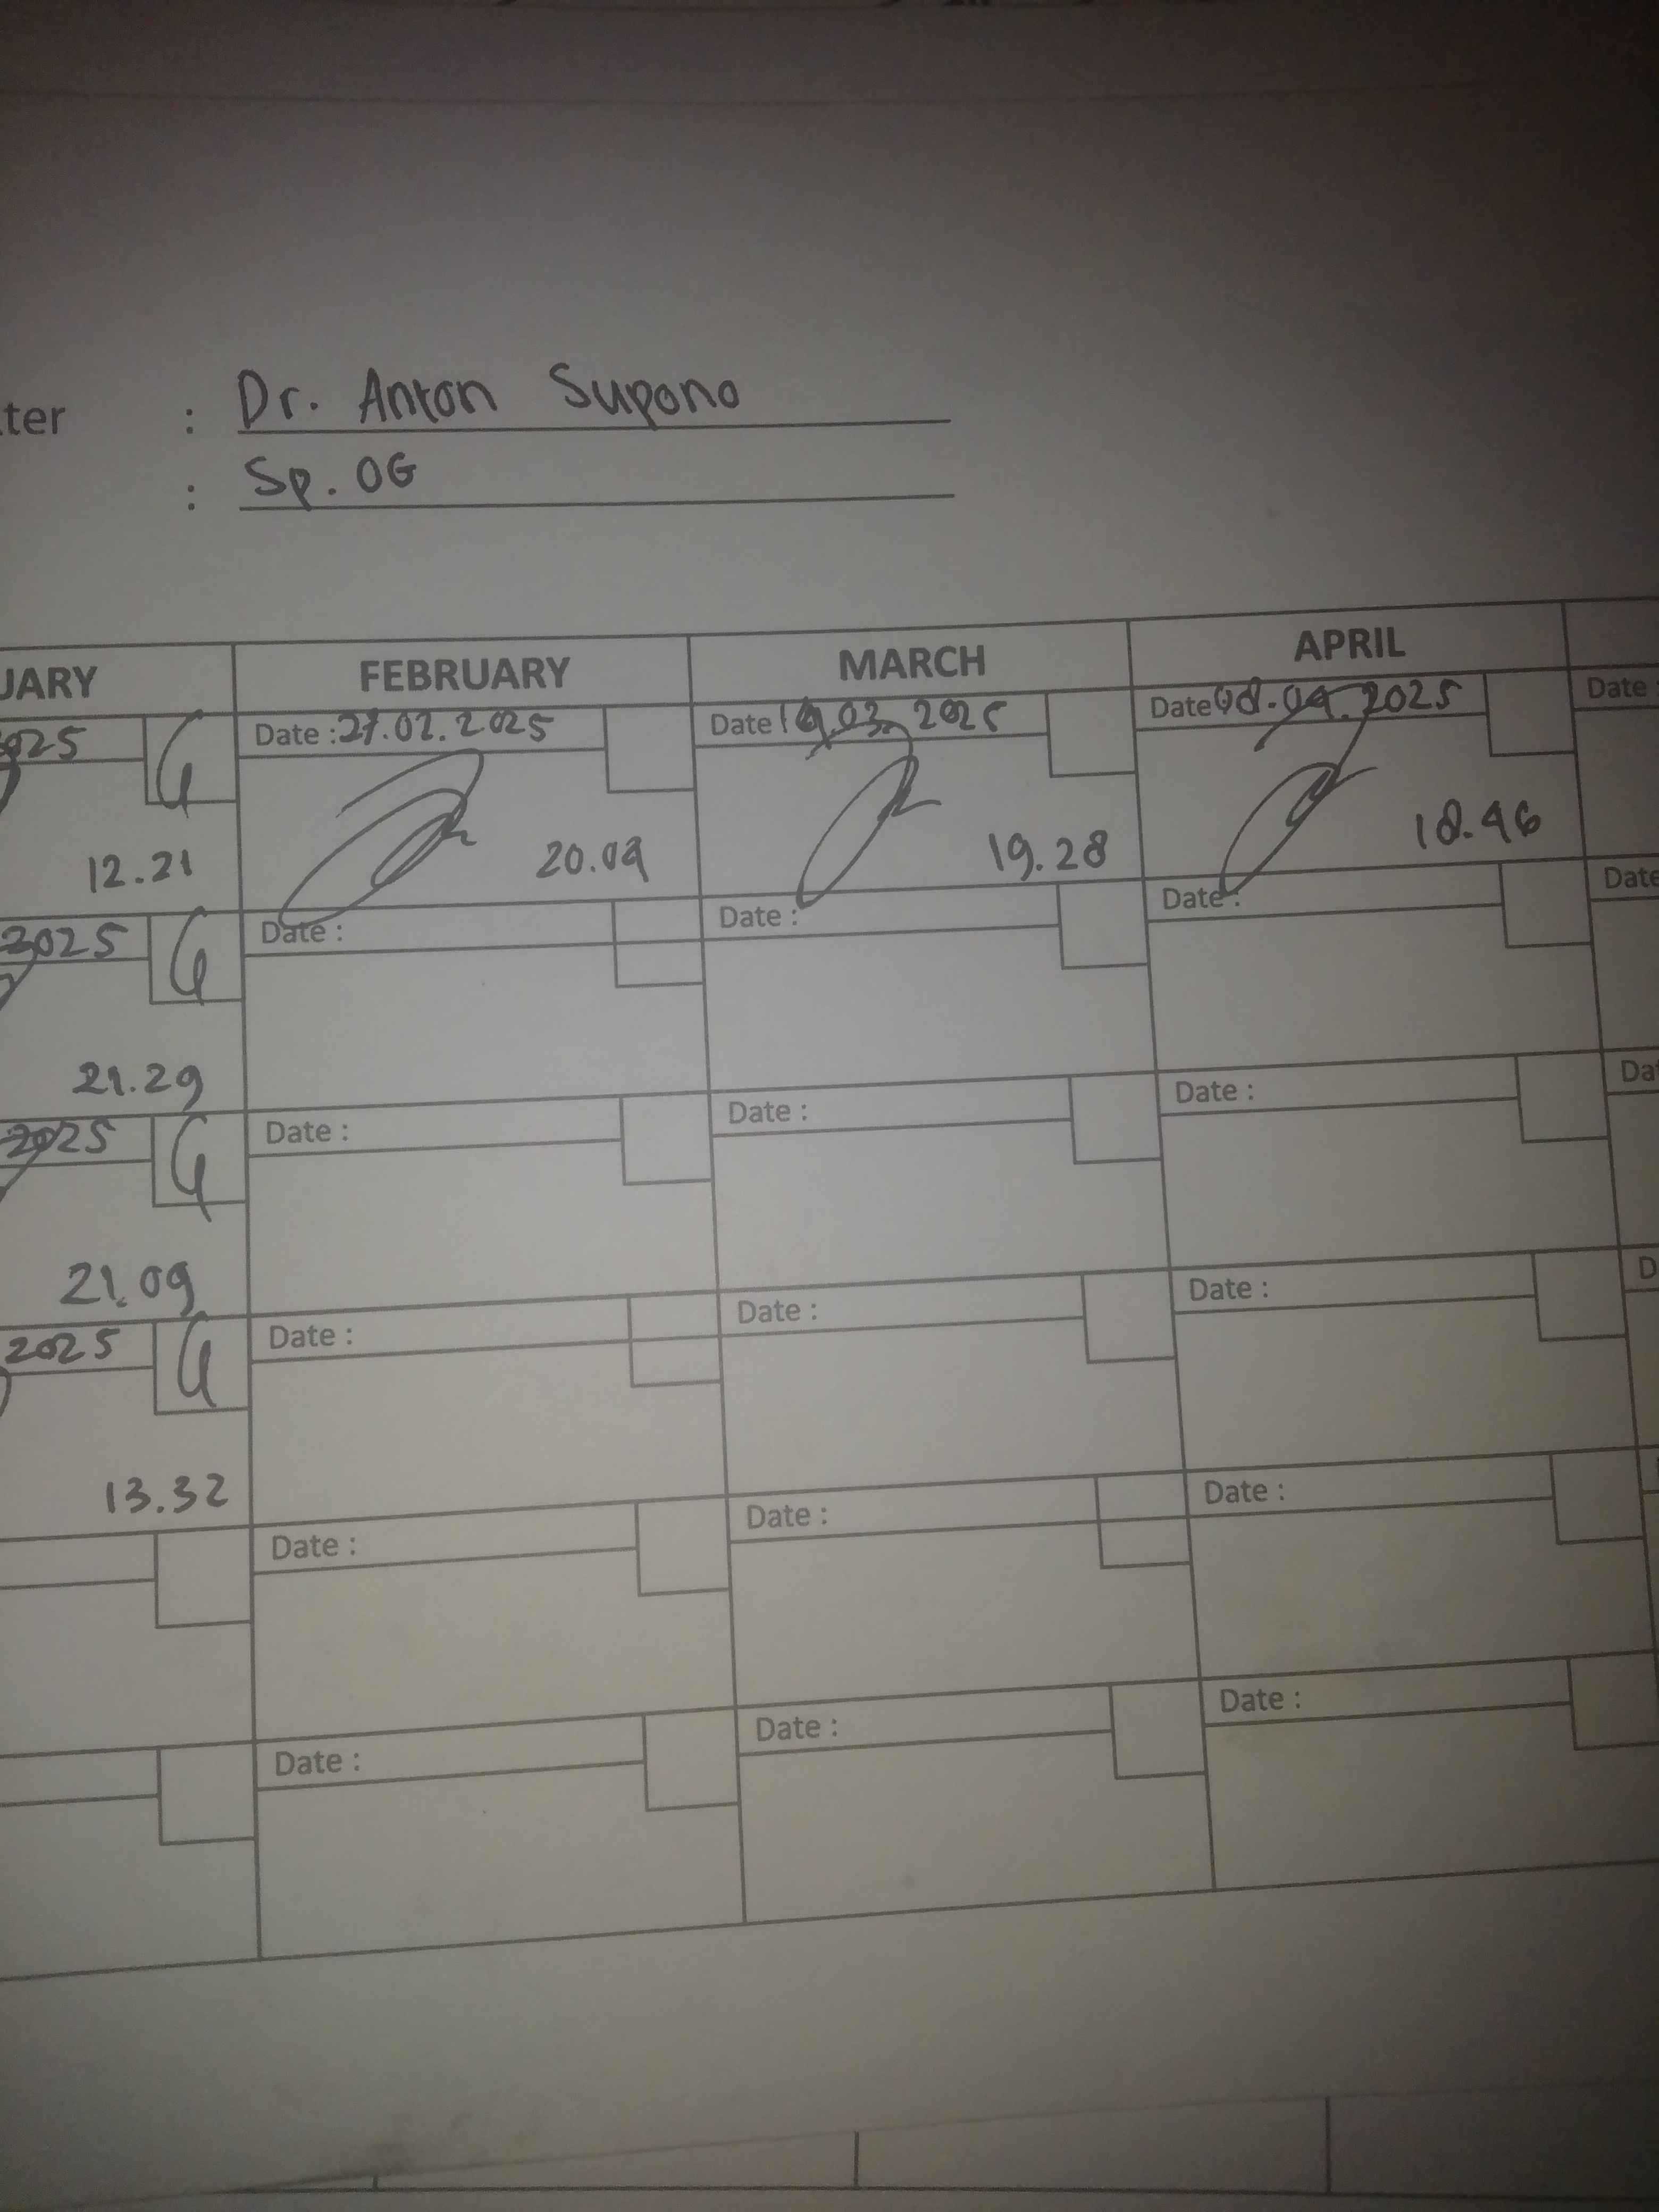 ter : Dr. Anton Supono
: Sp. OG
UARY FEBRUARY MARCH APRIL
025 Date : 27.02.2025 Date 03 2025 Date 08.04.2025 Date
12.21 20.04 19.28 18.46
2025 Date : Date : Date : Date
21.29
2025 Date : Date : Date : Da
21.09
2025 Date : Date : Date : D
13.32
Date : Date : Date :
Date : Date : Date :